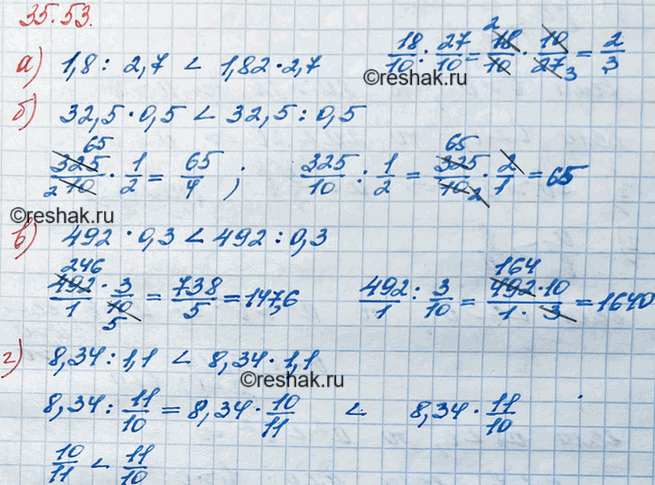 35.53.
а) 1,8 : 2,7 < 1,82 · 2,7   18/10 : 27/10 = 2 18/10 · 10/27 3 = 2/3
reshak.ru
б) 32,5 · 0,5 < 32,5 : 0,5
65 325/2 10 · 1/2 = 65/4 ;   325/10 : 1/2 = 65 325/10 2 · 2/1 = 65
reshak.ru
в) 492 · 0,3 < 492 : 0,3
246 492/1 · 3/10 5 = 738/5 = 147,6   492/1 : 3/10 = 164 492 · 10/1 · 3 = 1640
г) 8,34 : 1,1 < 8,34 · 1,1
reshak.ru
8,34 : 11/10 = 8,34 · 10/11 < 8,34 · 11/10
10/11 < 11/10